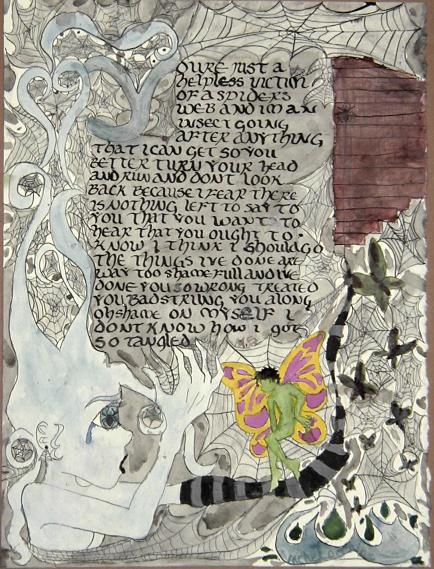 YOURE JUST A
HELPLESS VICTIM
OF A SPIDERS
WEB AND IM AN
INSECT GOING
AFTER ANYTHING
THAT I CAN GET SO YOU
BETTER TURN YOUR HEAD
AND RUN AND DONT LOOK
BACK BECAUSE I FEAR THERE
IS NOTHING LEFT TO SAY TO
YOU THAT YOU WANT TO
HEAR THAT YOU OUGHT TO
KNOW I THINK I SHOULD GO
THE THINGS IVE DONE ARE
WAY TOO SHAMEFULL AND IVE
DONE YOU SO WRONG TREATED
YOU BAD STRING YOU ALONG
OH SHAME ON MYSELF I
DONT KNOW HOW I GOT
SO TANGLED